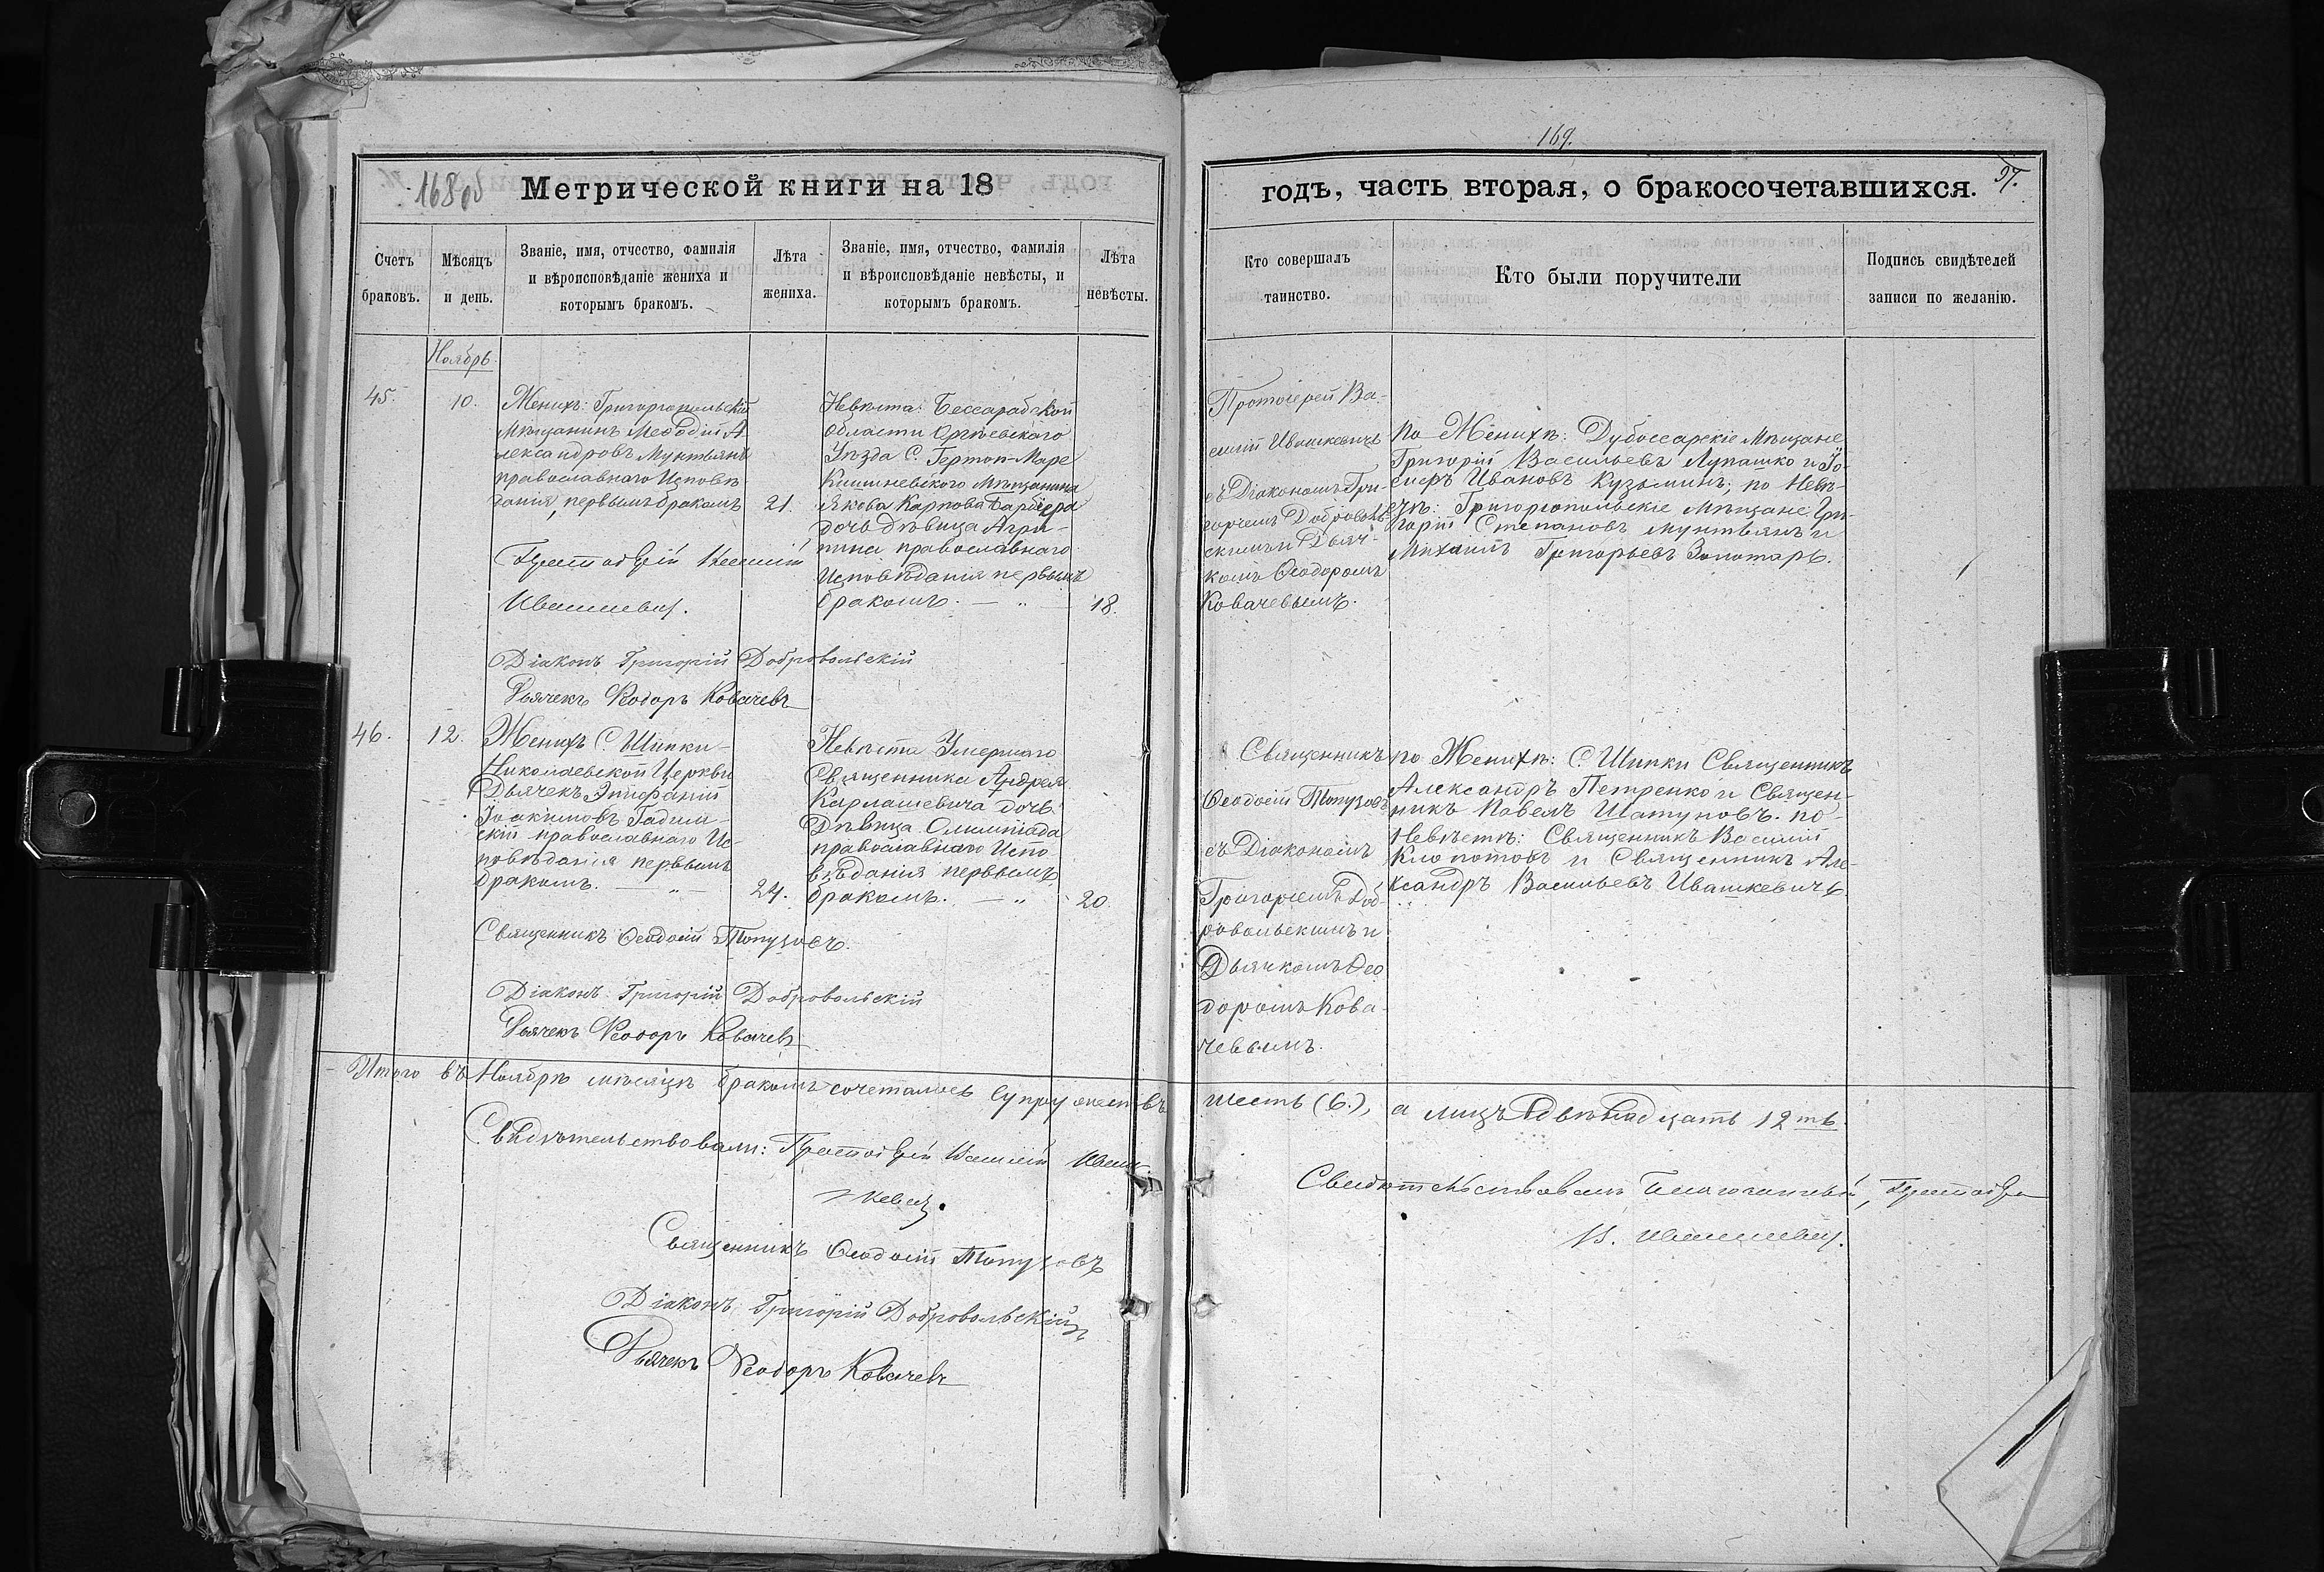 168 об
Метрической книги на 18
Счетъ браковъ.
Мѣсяцъ и день.
Званіе, имя, отчество, фамилія
и вѣроисповѣданіе жениха и
которымъ бракомъ.
Лѣта жениха.
Званіе, имя, отчество, фамилія
и вѣроисповѣданіе невѣсты, и
которымъ бракомъ.
Лѣта невѣсты.
Ноябрь.
45.
10.
Женихъ: Григоріопольскій
Мѣщанинъ Меѳодій А
лександровъ Мунтьянъ
православнаго Исповѣ
данія, первымъ бракомъ
21.
Невѣста: Бессарабской
Области Оргѣевскаго
Уѣзда С. Гертоп-Маре
Кишиневского Мѣщанина
Якова Карпова Барбіера
дочь дѣвица Агри-
пина православнаго
Исповѣданія первымъ
бракомъ. — „ —
18.
Протоіерей Василій
Ивашкевич.
Діаконъ Григорій Добровольскій
Дьячекъ Ѳеодоръ Ковачевъ
46.
12.
Женихъ С. Шипки-
Николаевской Церкви
Дьячекъ Эпифаній
Іоакимовъ Гадим-
скій православнаго Ис-
повѣданія первымъ
бракомъ. — „ —
24.
Невѣста Умершаго
Священника Андрея
Карлашевича дочь
Дѣвица Олимпіада
православнаго Испо
вѣданія первымъ
бракомъ. — „
20.
Священникъ Ѳеодосій Топузовъ.
Діаконъ Григорій Добровольскій
Дьячекъ Ѳеодоръ Ковачевъ
Итого въ Ноябрѣ мѣсяцѣ бракомъ сочеталось Супружествъ
Свѣдѣтельствовали: Протоіерей Василій Иваш-
кевич.
Священникъ Ѳеодосій Топузовъ
Діаконъ Григорій Добровольскій
Дьячекъ Ѳеодоръ Ковачевъ
169.
годъ, часть вторая, о бракосочетавшихся.
97.
Кто совершалъ
таинство.
Кто были поручители
Подпись свидѣтелей
записи по желанію.
Протоіерей Ва-
силій Ивашкевичъ
съ Діакономъ Гри-
горіемъ Доброволь-
скимъ и Дьяч-
комъ Ѳеодоромъ
Ковачевымъ.
По Женихѣ: Дубоссарскіе Мѣщане
Григорій Васильевъ Лупашко и Іо-
сифъ Ивановъ Кузьминъ; по Невѣ-
стѣ: Григоріопольскіе Мѣщане Гри-
горій Степановъ Мунтьянъ и
Михаилъ Григорьевъ Золотарь.
Священникъ
Ѳеодосій Топузовъ
съ Діакономъ
Григоріемъ Доб-
ровольскимъ и
Дьячкомъ Ѳео
доромъ Кова-
чевымъ.
по Женихѣ: С. Шипки Священникъ
Александръ Петренко и Священ-
никъ Павелъ Шатуновъ. по-
Невѣстѣ: Священникъ Василій
Клопотовъ и Священникъ Але-
ксандръ Васильевъ Ивашкевичъ.
шесть (6.), а лицъ двѣнадцать 12ть.
Свидѣтельствовалъ Благочинный, Протоіерей
В. Ивашкевич.